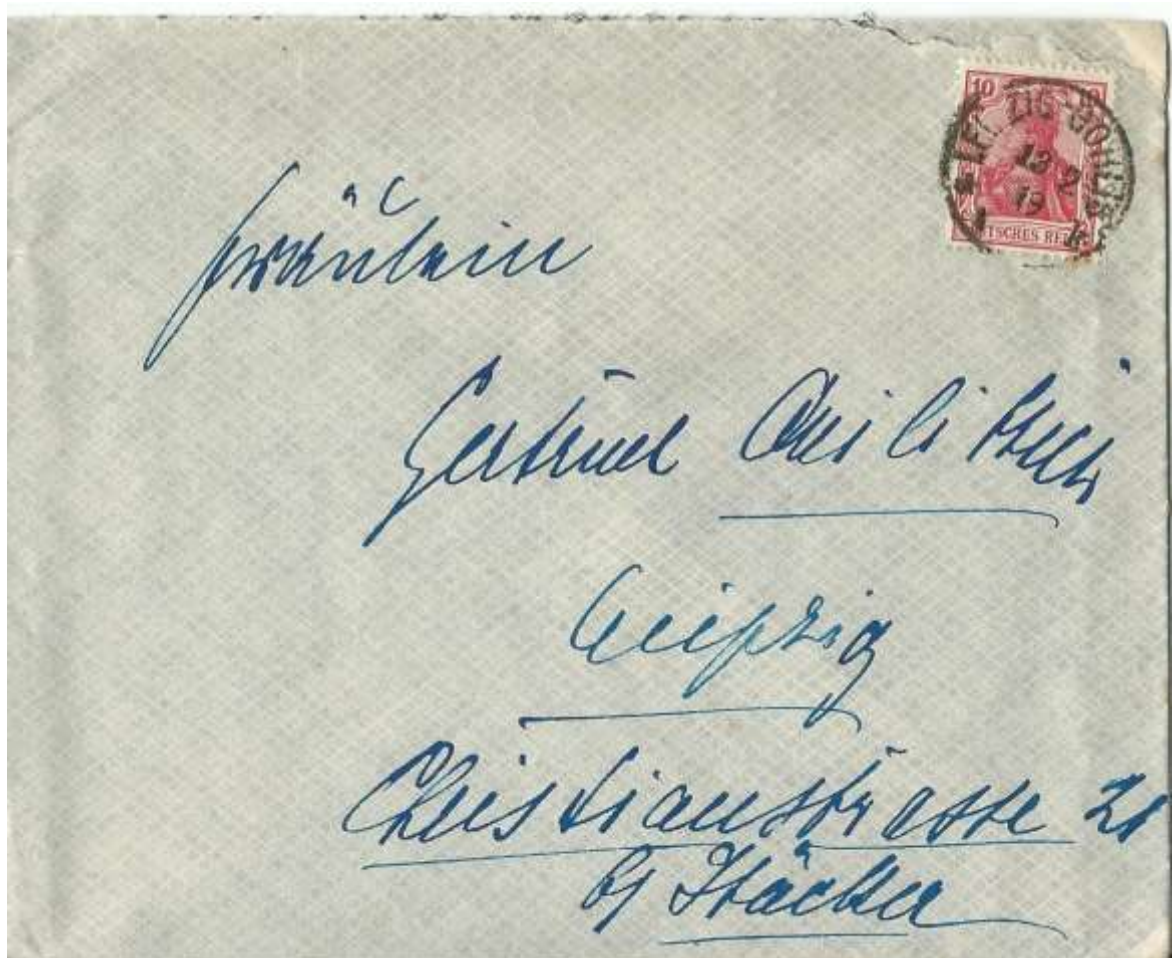 10
LEIPZIG-GOHLIS
12 2
19
DEUTSCHES REICH
Fräulein
Gertrud
Leipzig
Christianstrasse 21
b/